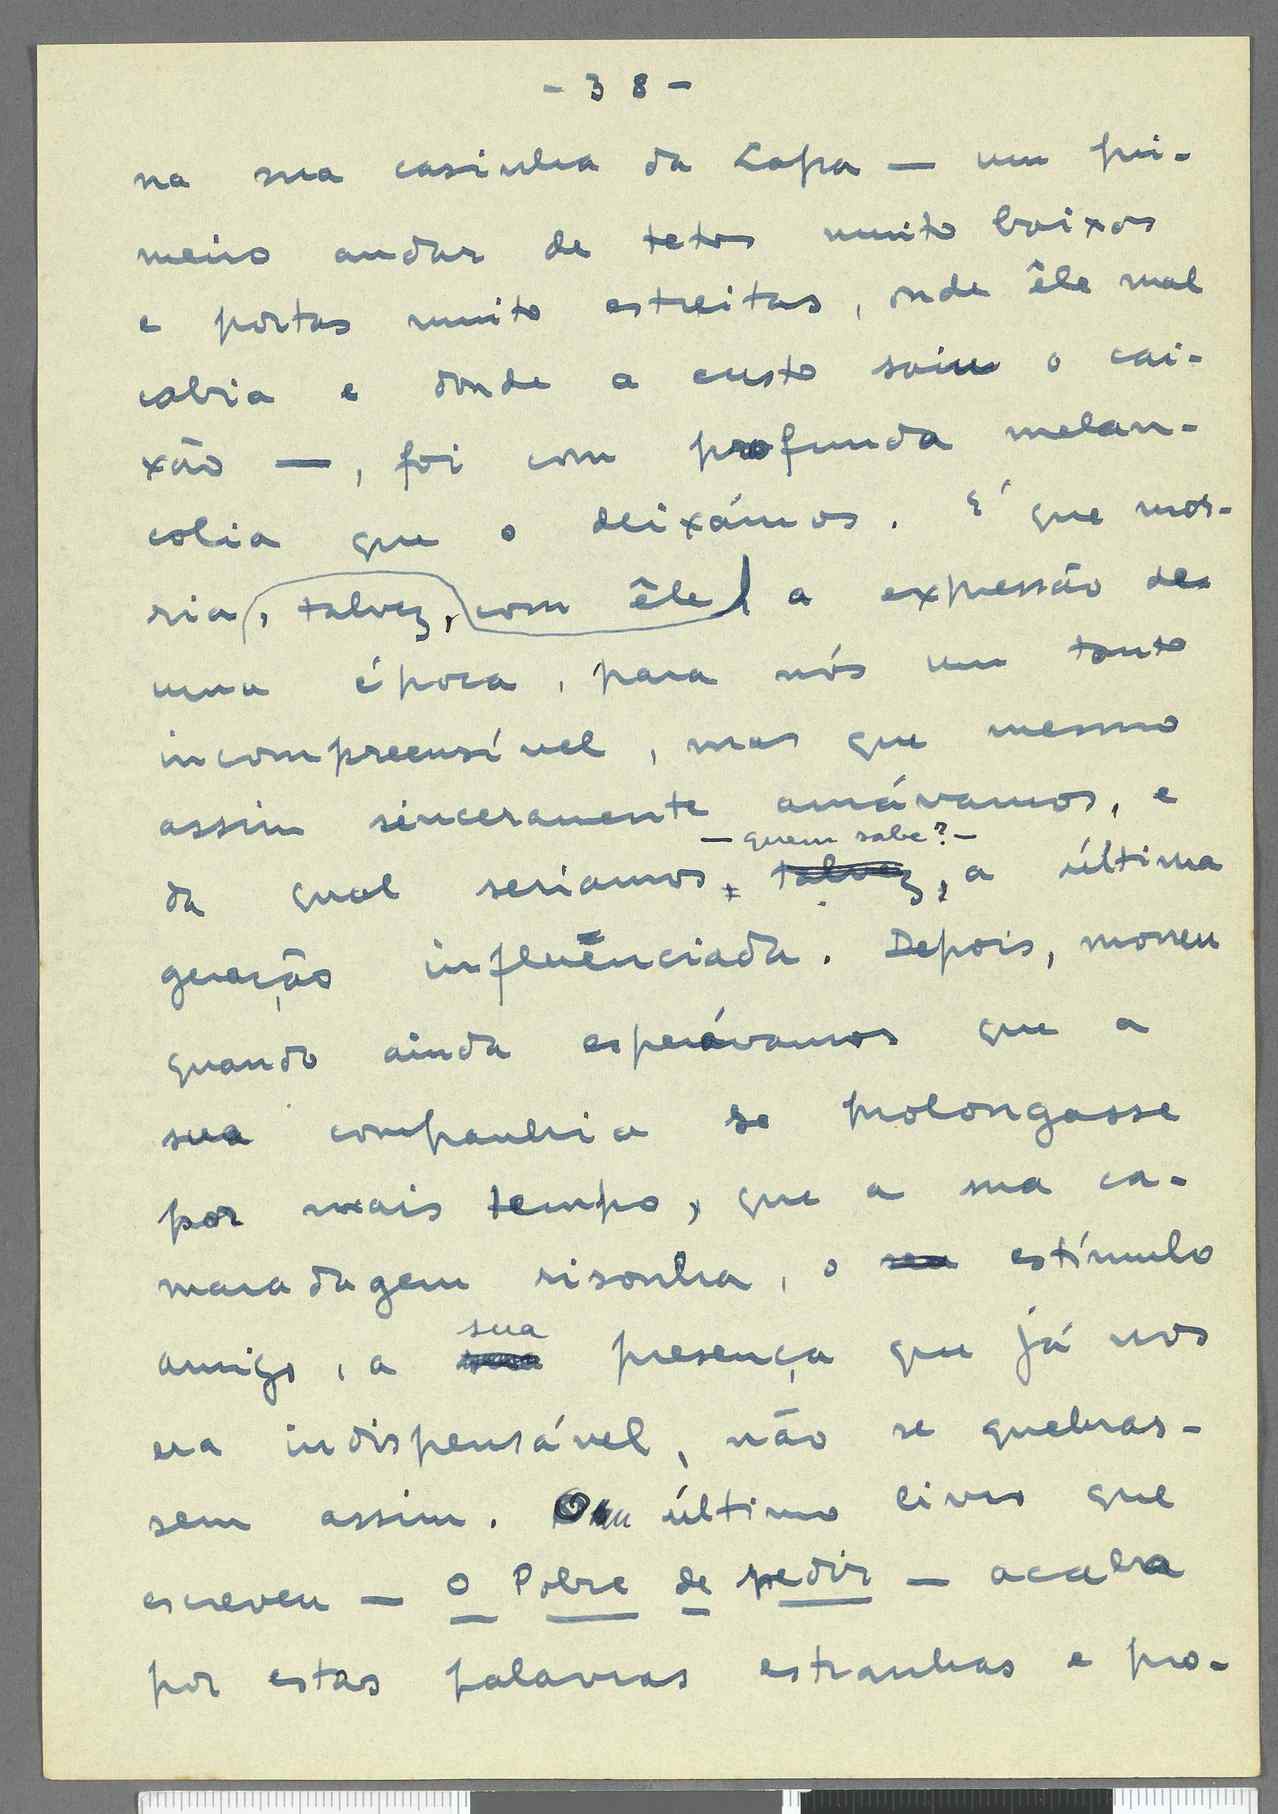 - 38 -
na sua casinha da Lapa — um pri-
meiro andar de tetos muito baixos
e portas muito estreitas, onde êle mal
cabia e donde a custo saiu o cai-
xão —, foi com profunda melan-
colia que o deixámos. É que mor-
ria, talvez, com êle, a expressão de
uma época, para nós um tanto
incompreensível, mas que mesmo
assim sinceramente amávamos, e
— quem sabe? —
da qual seriamos, talvez, a última
geração influenciada. Depois, morreu
quando ainda esperávamos que a
sua companhia se prolongasse
por mais tempo, que a sua ca-
maradagem risonha, o seu estímulo
sua
amigo, a presença que já nos
era indispensável, não se quebras-
sem assim. O último livro que
escreveu — O Pobre de pedir — acaba
por estas palavras estranhas e pro-